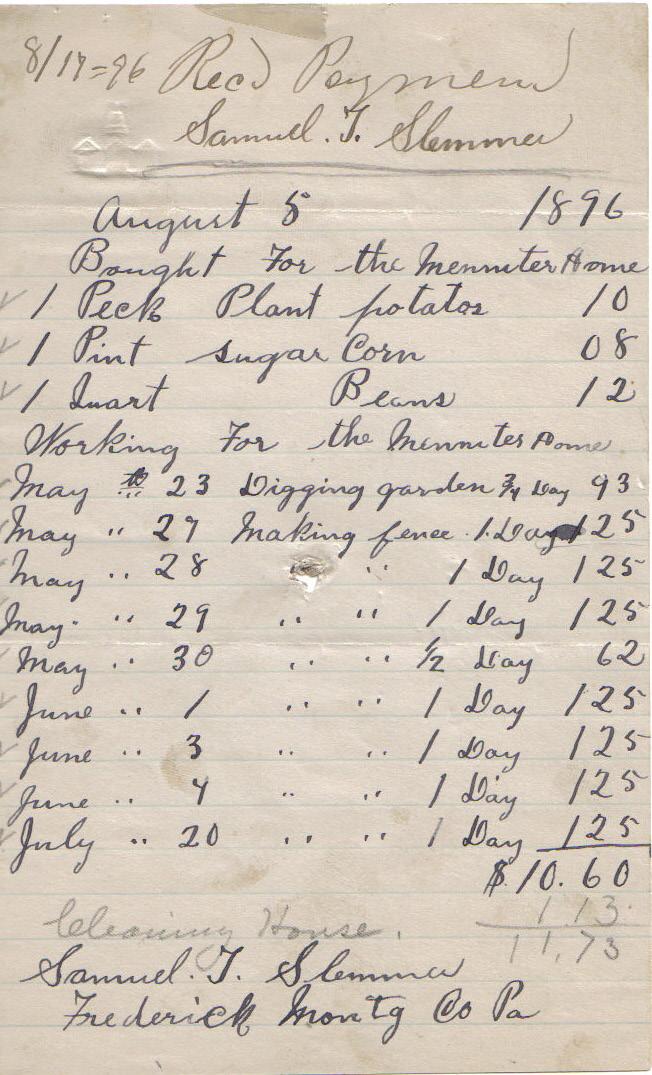 8/17=96 Recd Payment
Samuel. T. Slemmer
August 5 1896
Bought For the Menniter Home
1 Peck Plant potatos 10
1 Pint sugar Corn 08
1 Quart Beans 12
Working For the Menniter Home
May th 23 Digging garden 3/4 Day 93
May " 27 Making fence 1 Day 125
May " 28 " 1 Day 125
May " 29 " " 1 Day 125
May " 30 " " 1/2 Day 62
June " 1 " " 1 Day 125
June " 3 " " 1 Day 125
June " 4 " " 1 Day 125
July " 20 " " 1 Day 125
$10.60
Cleaning House. 1 13
11,73
Samuel. T. Slemmer
Frederick Montg Co Pa